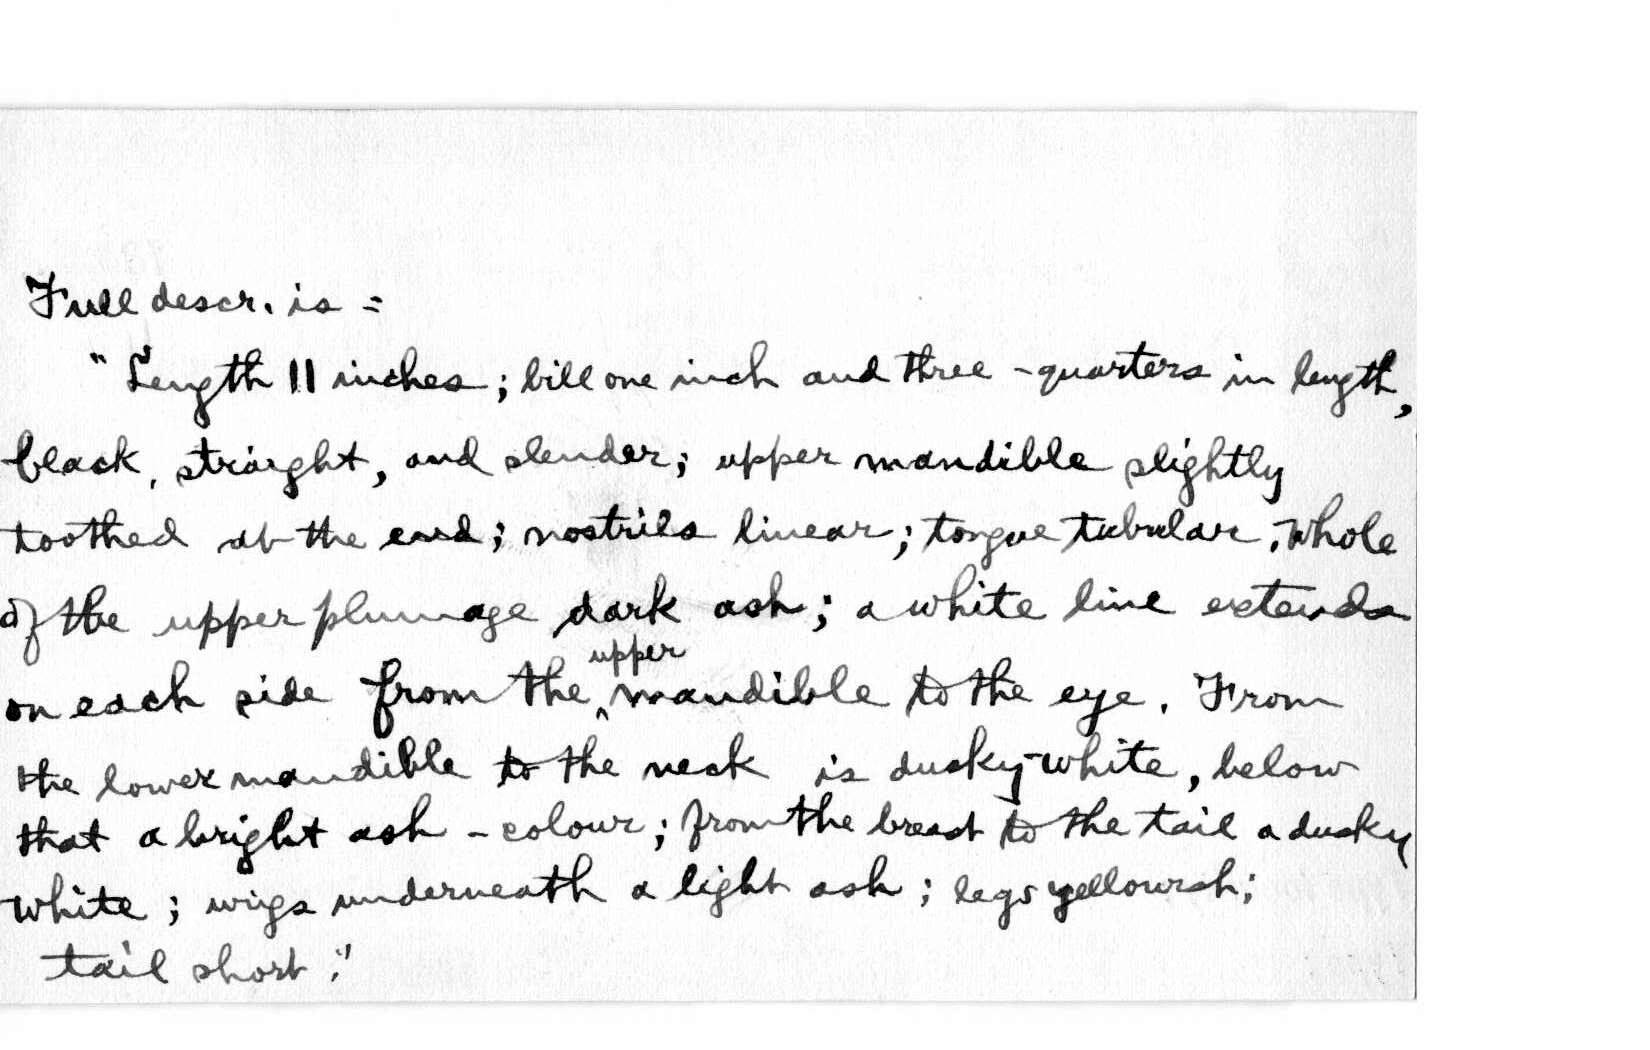 Full descr. is =
"Length 11 inches; bill one inch and three-quarters in length,
black, straight, and slender; upper mandible slightly
toothed at the end; nostrils linear; tongue tubular. Whole
of the upper plumage dark ash; a white line extends
upper
on each side from the ^ mandible to the eye. From
the lower mandible to the neck is dusky-white, below
that a bright ash-colour; from the breast to the tail a dusky
white; wigs underneath a light ash; legs yellowish;
tail short."